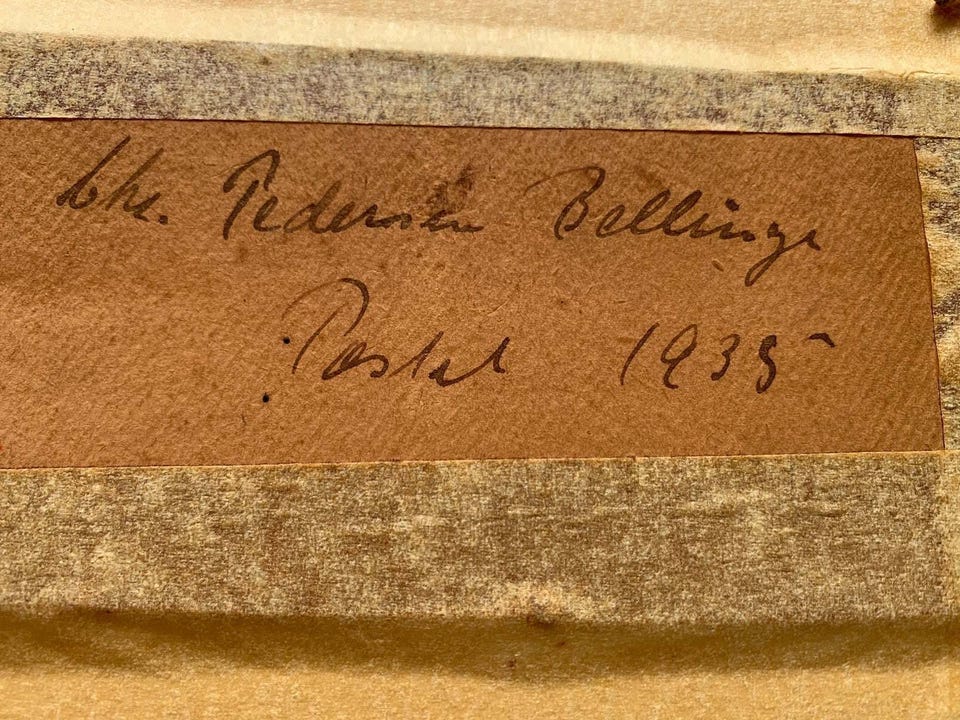 Chr. Pedersen Bellinge
Pastel 1935